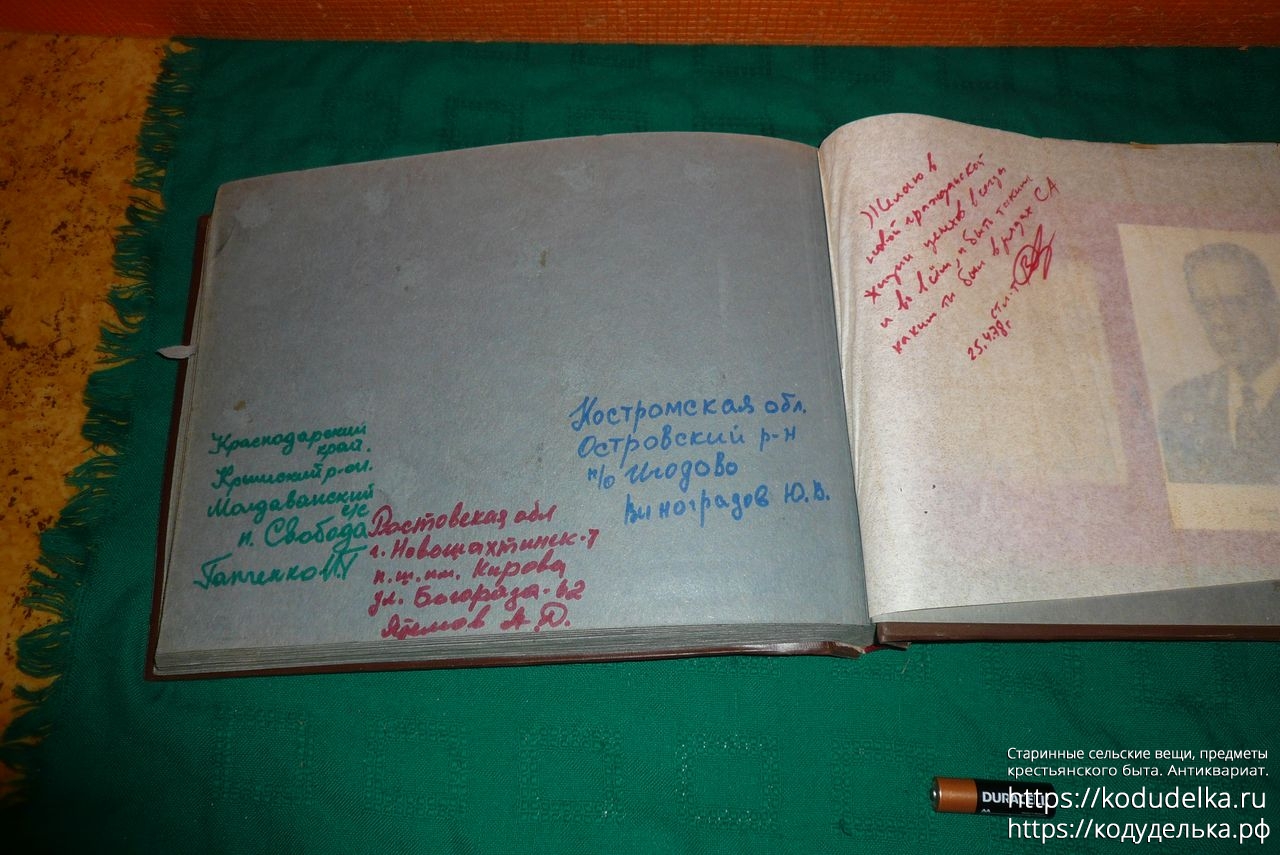 Краснодарский
край.
Крымский р-он.
Молдаванский
с/с
п. Свобода
Ростовская обл
г. Новошахтинск-7
п.ш.им. Кирова
ул. Богораза-62
А.Д.
Костромская обл.
Островский р-н
п/о Игодово
Виноградов Ю.В.
Желаю в
новой гражданской
жизни успехов всегда
и во всём, и быть таким
каким ты был в рядах СА
ст. л-т
25.4.78г.
DURACELL
Старинные сельские вещи, предметы
крестьянского быта. Антиквариат.
https://kodudelka.ru
https://кодуделька.рф